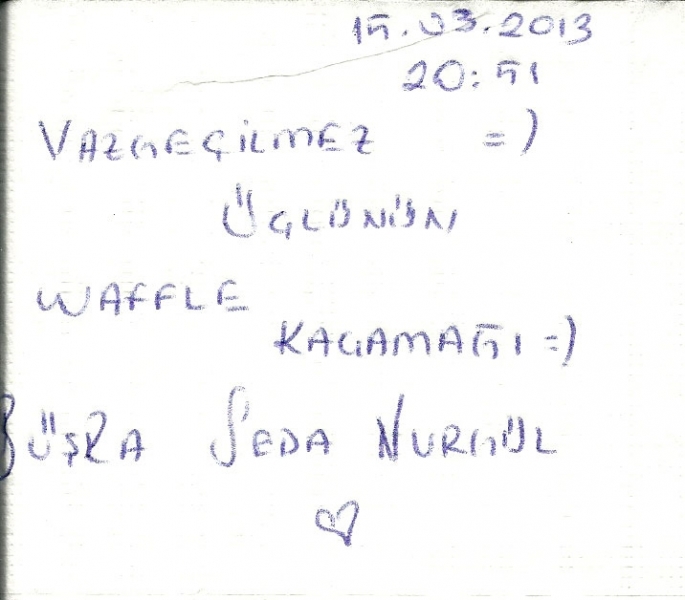 15.03.2013
20:51
VAZGEÇİLMEZ =)
ÜÇLÜNÜN
WAFFLE
KAÇAMAĞI =)
BÜŞRA SEDA NURGÜL